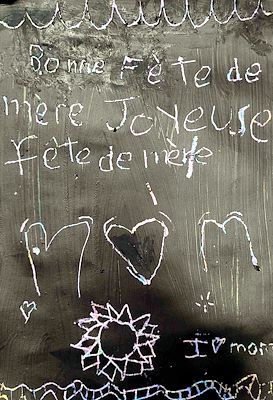 Bonne Fête de
mere Joyeuse
Fête de mère
m♡m
I ♡ mom